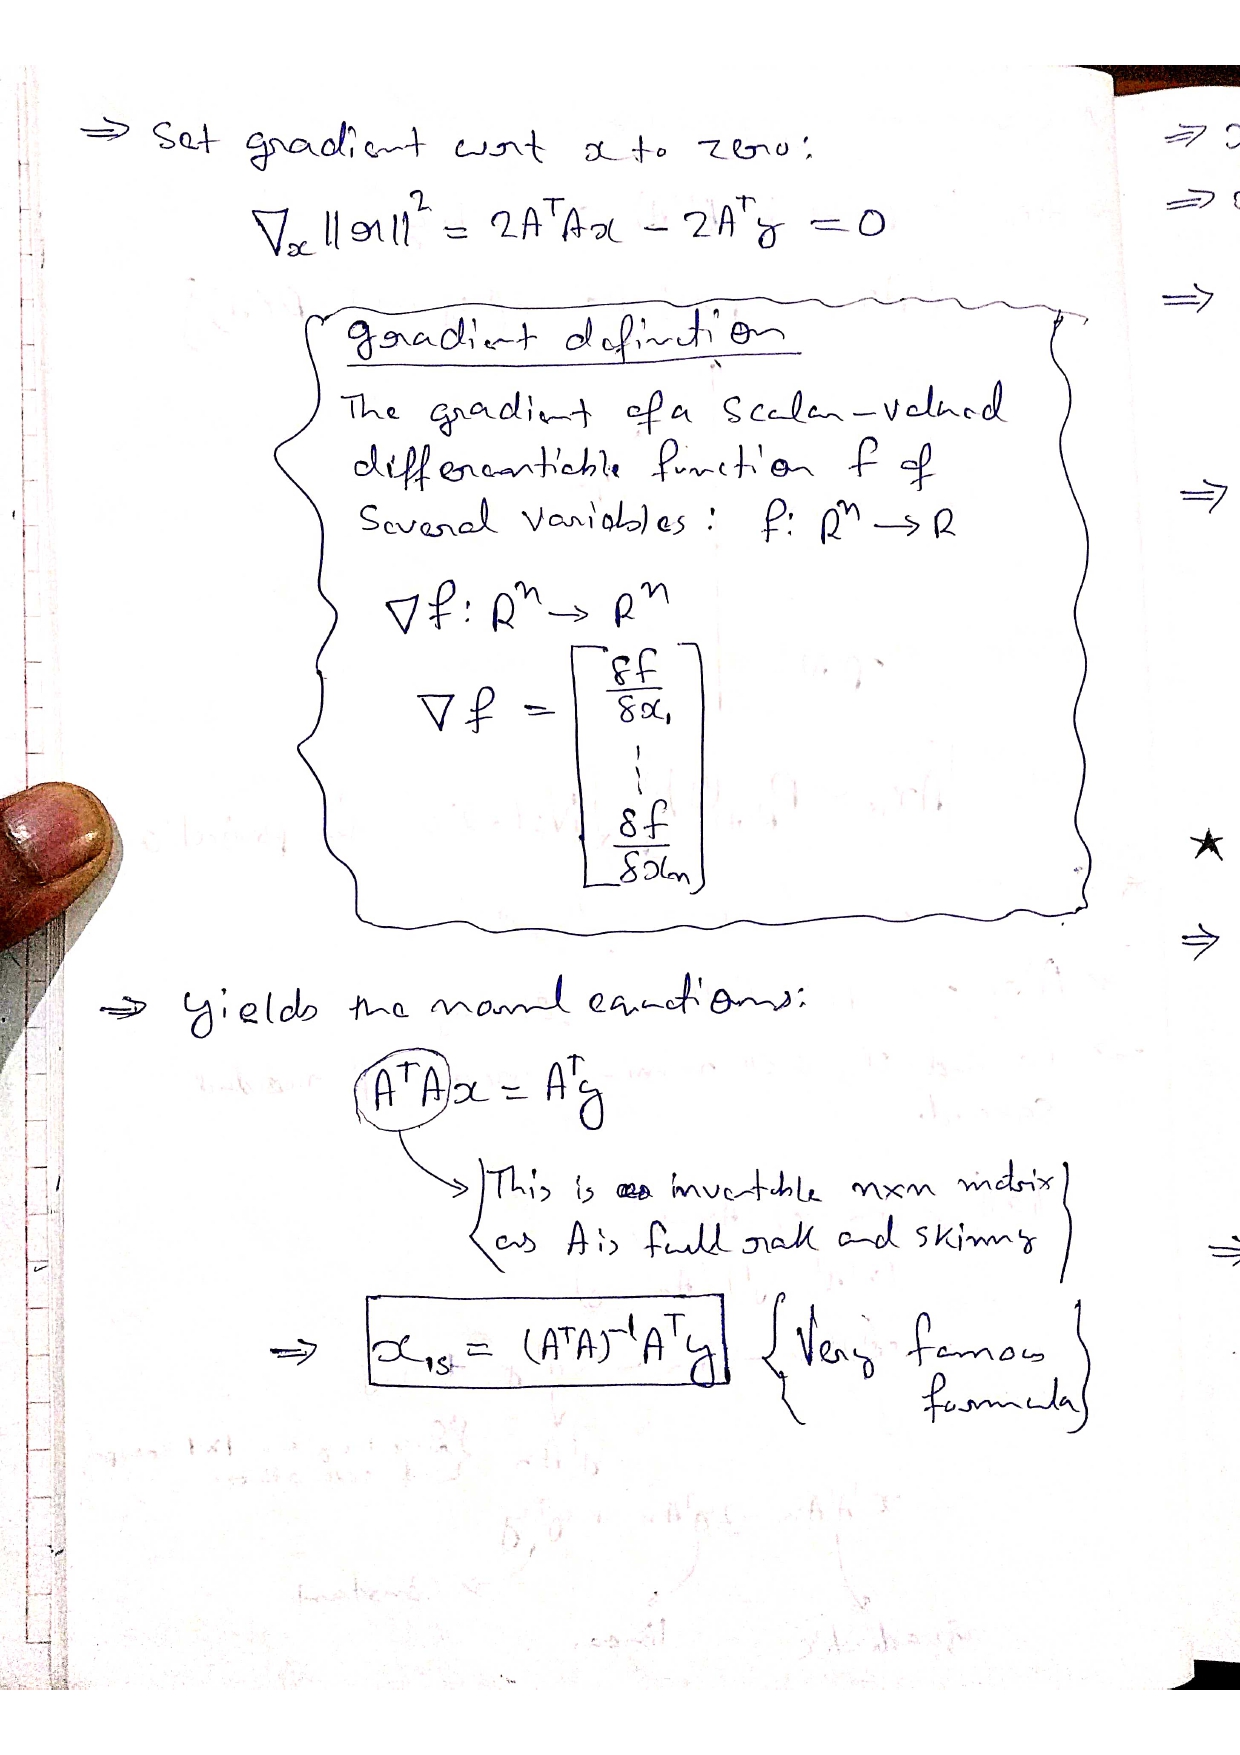 ⇒ Set gradient wrt x to zero:
∇ₓ ||r||² = 2AᵀAx − 2Aᵀy = 0
gradient definition
The gradient of a scalar-valued
differentiable function f of
Several variables: f: Rⁿ → R
∇f: Rⁿ → Rⁿ
∇f = [ δf/δx₁
⋮
δf/δxₙ ]
⇒ yields the normal equations:
AᵀAx = Aᵀy
{This is invertible nxn matrix
as A is full rak and skinny}
⇒ xₗₛ = (AᵀA)⁻¹Aᵀy {Very famous
formula}